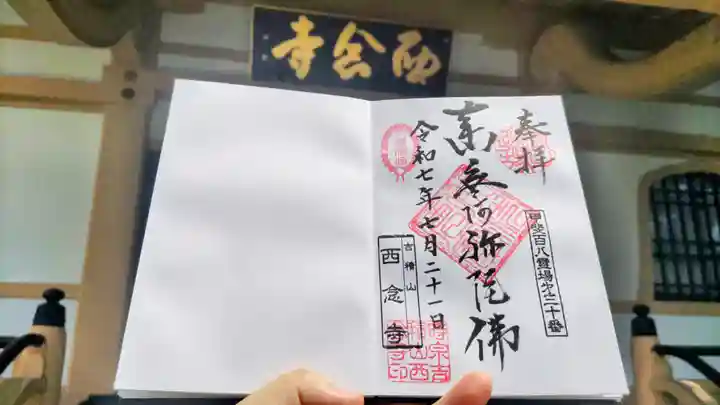 西念寺
奉拝
甲斐百八霊場第二十番
南無阿弥陀佛
令和七年七月二十一日
吉積山
西念寺